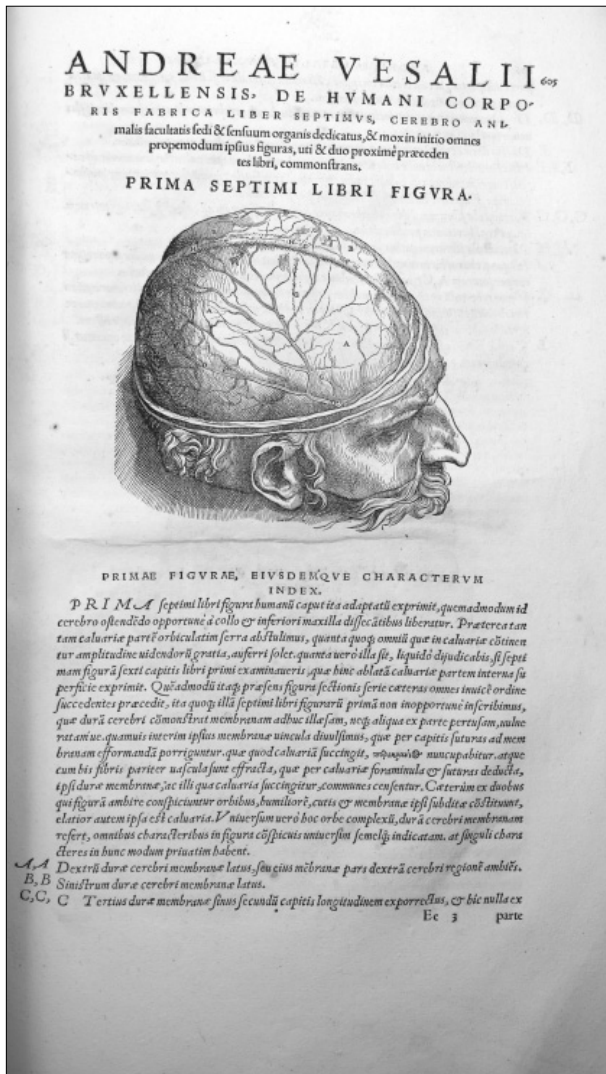 ANDREAE VESALII 605
BRVXELLENSIS, DE HVMANI CORPO-
RIS FABRICA LIBER SEPTIMVS, CEREBRO ANI-
malis facultatis sedi & sensuum organis dedicatus, & mox in initio omnes
propemodum ipsius figuras, uti & duo proximè præceden
tes libri, commonstrans.
PRIMA SEPTIMI LIBRI FIGVRA.
A
PRIMAE FIGVRAE, EIVSDEMQVE CHARACTERVM
INDEX.
PRIMA septimi libri figura humanū caput ita adaptatū exprimit, quemadmodum id
cerebro ostendēdo opportunè à collo & inferiori maxilla dissecātibus liberatur. Præterea tan
tam caluariæ partē orbiculatim serra abstulimus, quanta quoq; omniū quæ in caluariæ cōtinen
tur amplitudine uidendorū gratia, auferri solet. quanta uero illa sit, liquidò dijudicabis, si septi
mam figurā sexti capitis libri primi examinaueris, quæ hinc ablatā caluariæ partem interna su
perficie exprimit. Quēadmodū itaq; præsens figura sectionis serie cæteras omnes inuicē ordine
succedentes præcedit, ita quoq; illā septimi libri figurarū primā non inopportunè inscribimus,
quæ durā cerebri cōmonstrat membranam adhuc illæsam, neq; aliqua ex parte pertusam, uulne
ratam ue. quamuis interim ipsius membranæ uincula diuulsimus, quæ per capitis suturas ad mem
branam efformandā porriguntur. quæ quod caluariā succingit, nuncupabitur. atque
cum his fibris pariter uascula sunt effracta, quæ per caluariæ foraminula & suturas deducta,
ipsi duræ membranæ, ac illi qua caluaria succingitur, communes censentur. Cæterùm ex duobus
qui figurā ambire conspiciuntur orbibus, humiliorē, cutis & membranæ ipsi subditæ cōstituunt,
elatior autem ipsa est caluaria. Vniuersum uerò hoc orbe complexū, durā cerebri membranam
refert, omnibus characteribus in figura cōspicuis uniuersim semelq; indicatam. at singuli chara
cteres in hunc modum priuatim habent.
A, A Dextrū duræ cerebri membranæ latus, seu eius mēbranæ pars dextrā cerebri regionē ambiēs.
B, B Sinistrum duræ cerebri membranæ latus.
C, C, C Tertius duræ membranæ sinus secundū capitis longitudinem exporrectus, & hic nulla ex
Ee 3 parte